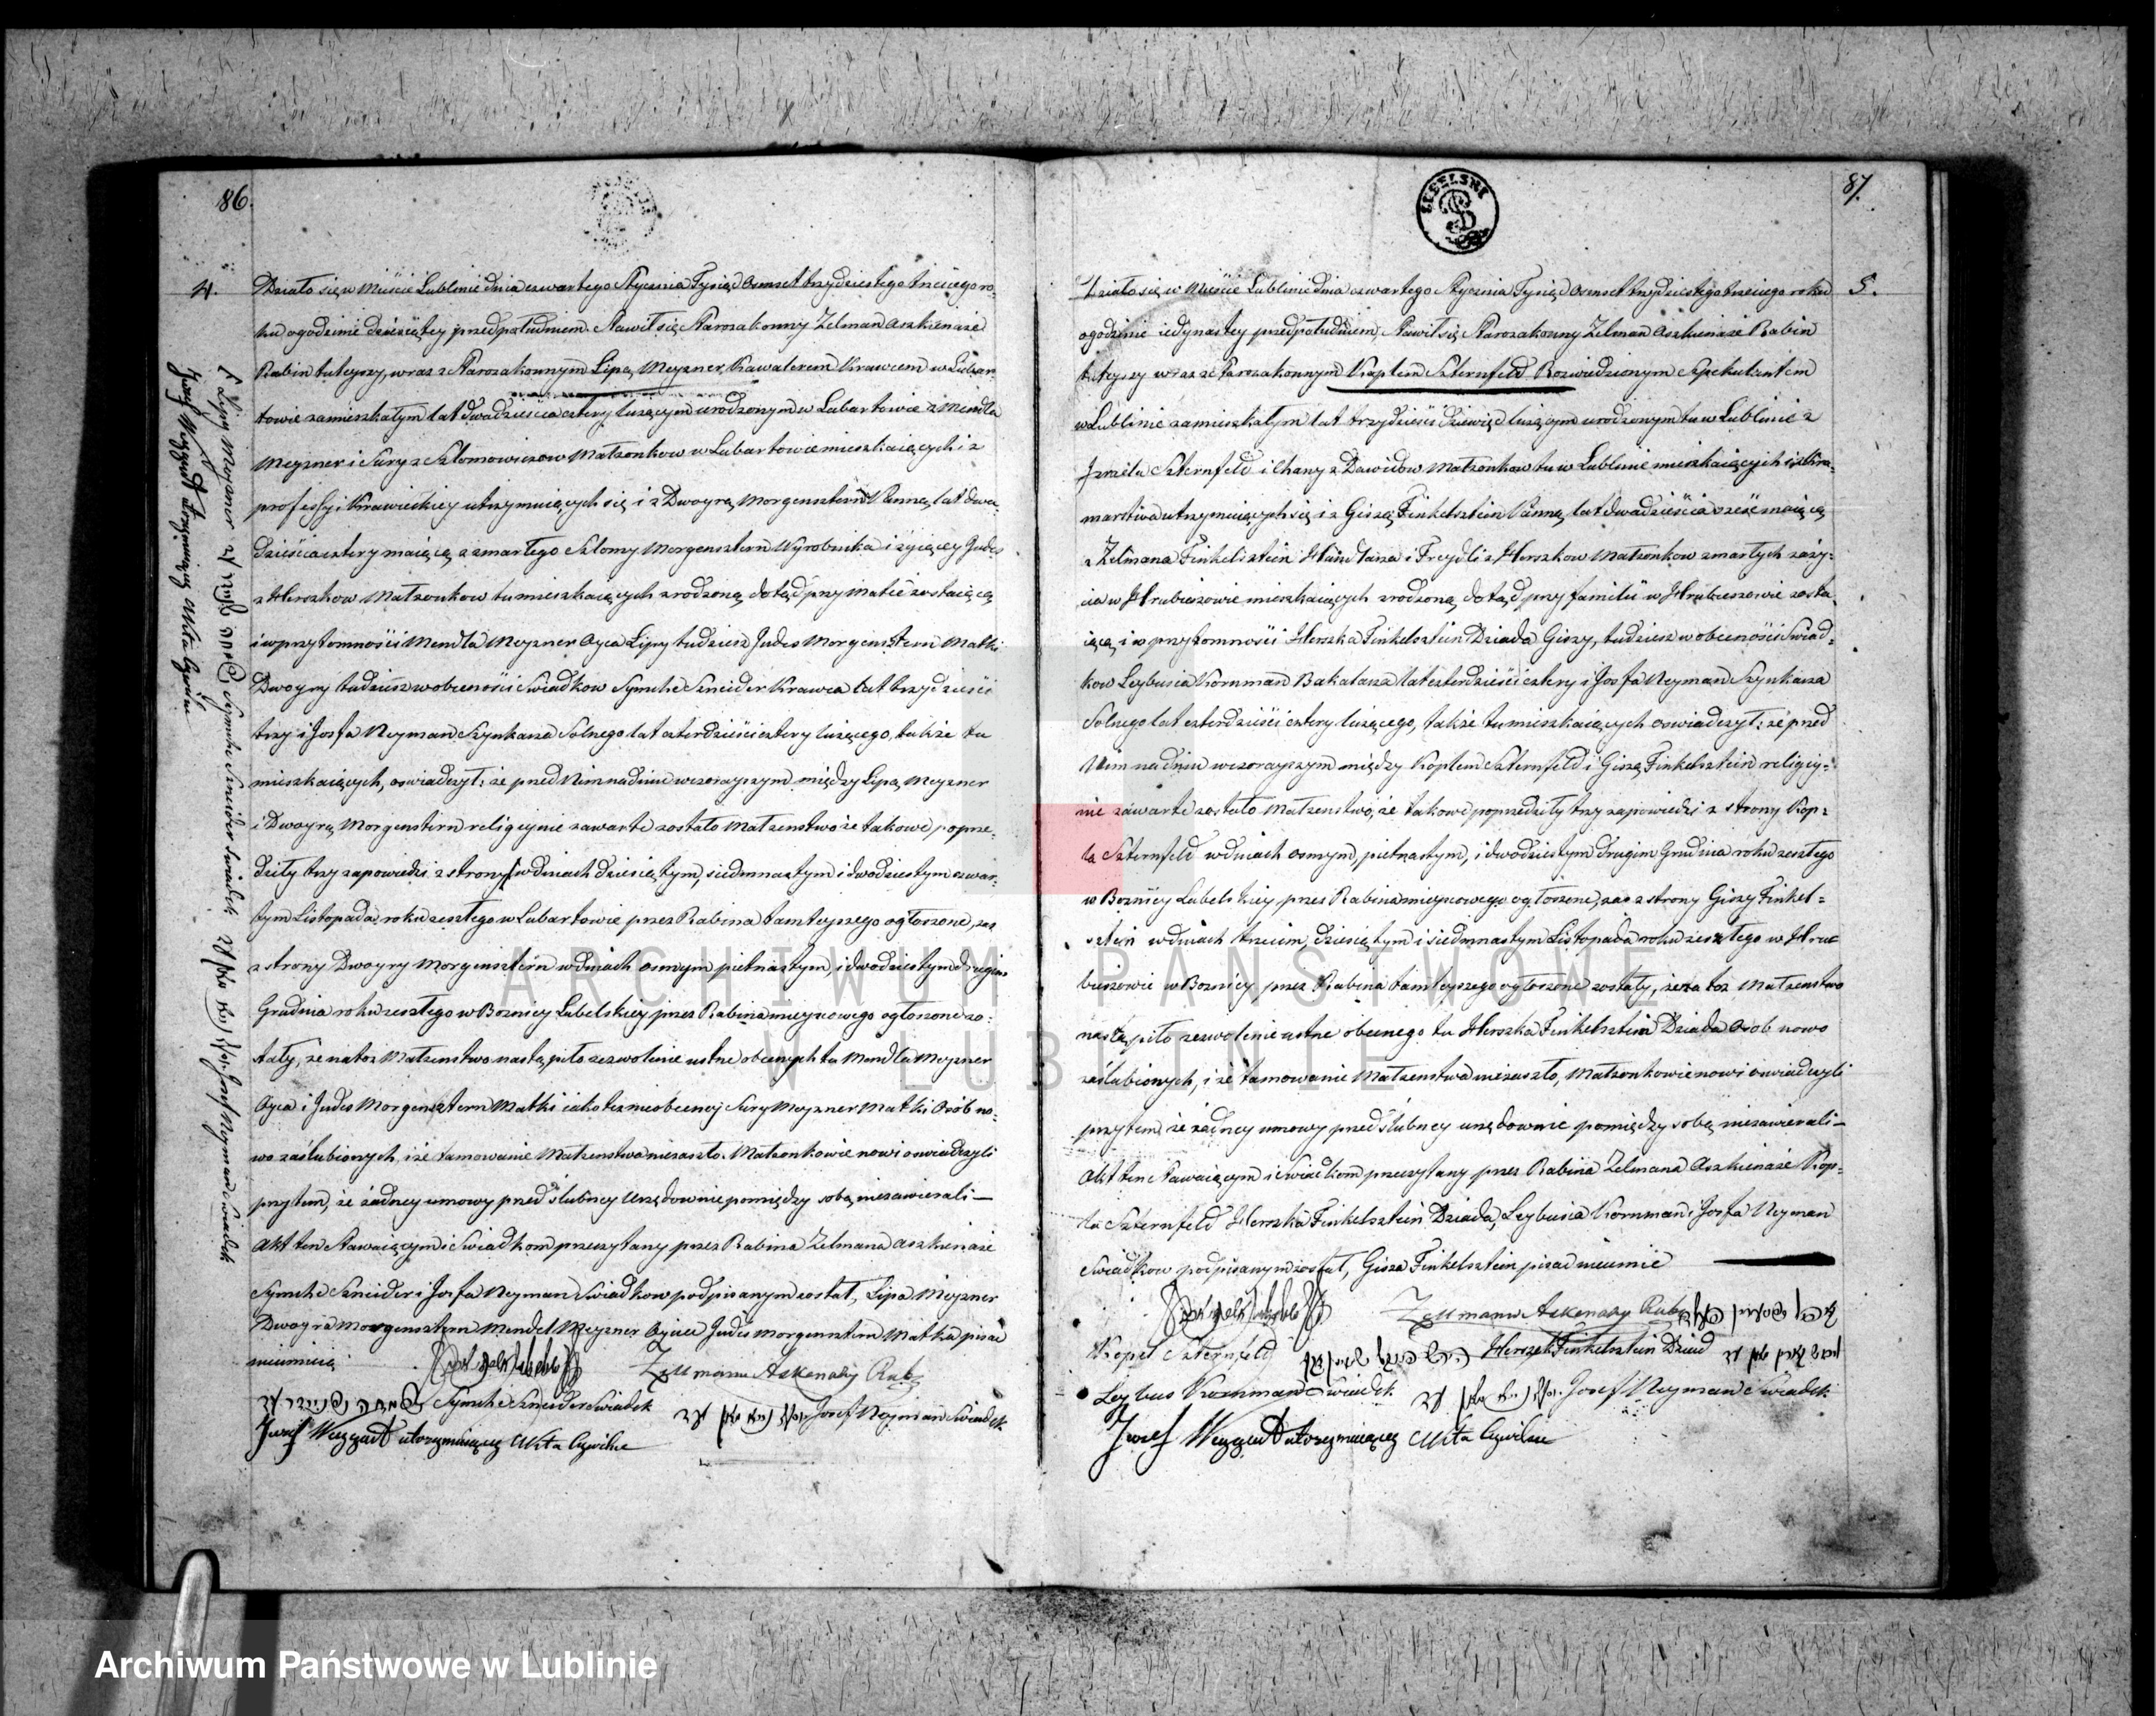 86.
4.
Działo się w Mieście Lublinie dnia czwartego Stycznia Tysiąc Osmset trzydziestego trzeciego ro-
ku o godzinie dziesiątey przed południem. Stawił się Starozakonny Zelman Aszkienaże
Rabin tuteyszy, wraz z Starozakonnym Lipą Meyzner, Kawalerem Krawcem w Lubar-
towie zamieszkałym lat dwadzieścia cztery liczącym urodzonym w Lubartowie z Mendla
Meyzner i Sury z Szlomowiczow Małżonkow w Lubartowie mieszkaiących i z
professyi Krawieckiey utrzymuiących się i z Dwoyrą Morgensztern Panną, lat dwa-
dzieścia cztery maiącą z zmarłego Szlomy Morgensztern Wyrobnika i żyiącey Judes
z Herszkow Małżonkow tu mieszkaiących zrodzoną, dotąd przy Matce zostaiącą
i w przytomności Mendla Meyzner Oyca Lipy tudzież Judes Morgensztern Matki
Dwoyry tudzież w obecności Swiadkow Symche Szneider Krawca lat trzydzieści
trzy i Josfa Neyman Szynkarza Solnego lat czterdzieści cztery liczącego, także tu
mieszkaiących, oswiadczył: że przed Nim na dniu wczorayszym między Lipą Meyzner
i Dwoyrą Morgenstern religiynie zawarte zostało Małżenstwo że takowe poprze-
dziły trzy zapowiedzi z strony w dniach dziesiątym, siedmnastym i dwodziestym czwar-
tym Listopada roku zeszłego w Lubartowie przez Rabina tamteyszego ogłoszone, zaś
z strony Dwoyry Morgensztern w dniach osmym pietnastym, i dwodziestym drugim
Grudnia roku zeszłego w Bożnicy Lubelskiey przez Rabina mieyscowego ogłoszone zo-
stały, że na toż Małżenstwo nastąpiło zezwolenie ustne obecnych tu Mendla Meyzner
Oyca i Judes Morgensztern Matki iako też nieobecney Sury Meyzner Matki Osób no-
wo zaślubionych, i że tamowanie Małżenstwa nie zaszło. Małżonkowie nowi oświadczyli
przytem, że żadney umowy przed ślubney Urzędownie pomiędzy sobą niezawierali —
Akt ten Stawaiącym i Swiadkom przeczytany przez Rabina Zelmana Aszkienaże
Symche Szneider i Josfa Neyman Swiadkow podpisanym został, Lipa Meyzner
Dwoyra Morgensztern Mendel Meyzner Oyciec Judes Morgensztern Matka pisać
nieumieią
Zellmann Askenazy Rab.
Symche Szneider Swiadek
Josef Neyman Swiadek
Josef Weyzert utrzymuiący Akta Cywilne
87.
5.
Działo się w Mieście Lublinie dnia czwartego Stycznia Tysiąc Osmset trzydziestego trzeciego roku
o godzinie iedynastey przed południem, Stawił się Starozakonny Zelman Aszkienaże Rabin
tuteyszy wraz z Starozakonnym Koplem Szternfeld Rozwiedzionym Spekulantem
w Lublinie zamieszkałym lat trzydzieści dziewięć liczącym urodzonym tu w Lublinie z
Izraela Szternfeld i Chany z Dawidow Małżonkow tu w Lublinie mieszkaiących i z kra-
marstwa utrzymuiących się i z Giszą Finkelsztein Panną, lat dwadzieścia sześć maiącą
z Zelmana Finkelsztein Handlarza i Freydli z Herszkow Małżonkow zmarłych za ży-
cia w Hrubieszowie mieszkaiących zrodzoną, dotąd przy familii w Hrubieszowie zosta-
iącą, i w przytomności Herszka Finkelsztein Dziada Giszy, tudzież w obecności Swiad-
kow Leybusia Kornman Bakałarza lat czterdzieści cztery i Josfa Neyman Szynkarza
Solnego lat czterdzieści cztery liczącego, także tu mieszkaiących oswiadczył: że przed
Nim na dniu wczorayszym między Koplem Szternfeld i Giszą Finkelsztein religiy-
nie zawarte zostało Małżenstwo, że takowe poprzedziły trzy zapowiedzi z strony Kop-
la Szternfeld w dniach osmym, pietnastym, i dwodziestym drugim Grudnia roku zeszłego
w Bożnicy Lubelskiey przez Rabina mieyscowego ogłoszone, zaś z strony Giszy Finkel-
sztein w dniach trzecim, dziesiątym i siedmnastym Listopada roku zeszłego w Hru-
bieszowie w Bożnicy przez Rabina tamteyszego ogłoszone zostały, że na toż Małżenstwo
nastąpiło zezwolenie ustne obecnego tu Herszka Finkelsztein Dziada Osob nowo
zaślubionych, i że tamowanie Małżenstwa niezaszło, Małżonkowie nowi oswiadczyli
przytem, że żadney umowy przed ślubney urzędownie pomiędzy sobą niezawierali —
Akt ten Stawaiącym i Swiadkom przeczytany przez Rabina Zelmana Aszkienaże Kop-
la Szternfeld Herszka Finkelsztein Dziada, Leybusia Kornman i Josfa Neyman
Swiadkow podpisanym został, Gisza Finkelsztein pisać nieumie
Zellmann Askenazy Rab.
Kopel Szternfeld
Herszek Finkelsztein Dziad
Leybus Kornman Swiadek
Josef Neyman Swiadek
Josef Weyzert utrzymuiący Akta Cywilne
Lipy Meyzner
Symche Szneider Swiadek
Josef Neyman Swiadek
Josef Weyzert utrzymuiący Akta Cywilne
ARCHIWUM PAŃSTWOWE
W LUBLINIE
Archiwum Państwowe w Lublinie